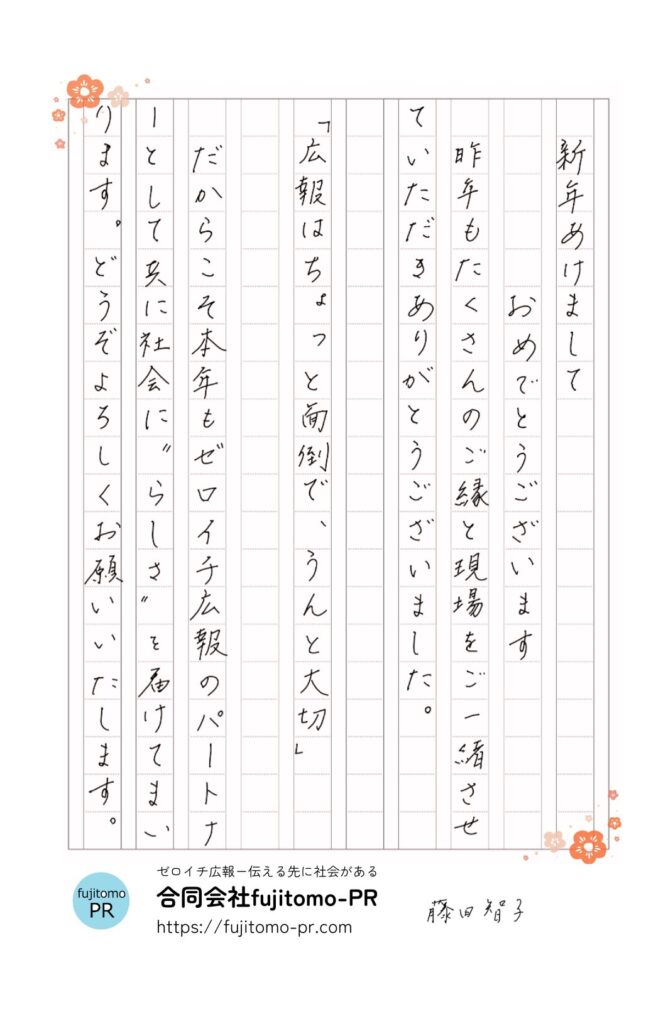 新年あけまして
おめでとうございます
昨年もたくさんのご縁と現場をご一緒させ
ていただきありがとうございました。
「広報はちょっと面倒で、うんと大切」
だからこそ本年もゼロイチ広報のパートナ
ーとして共に社会に〝らしさ〟を届けてまい
ります。どうぞよろしくお願いいたします。
ゼロイチ広報ー伝える先に社会がある
fujitomo
PR
合同会社fujitomo-PR
https://fujitomo-pr.com
藤田智子